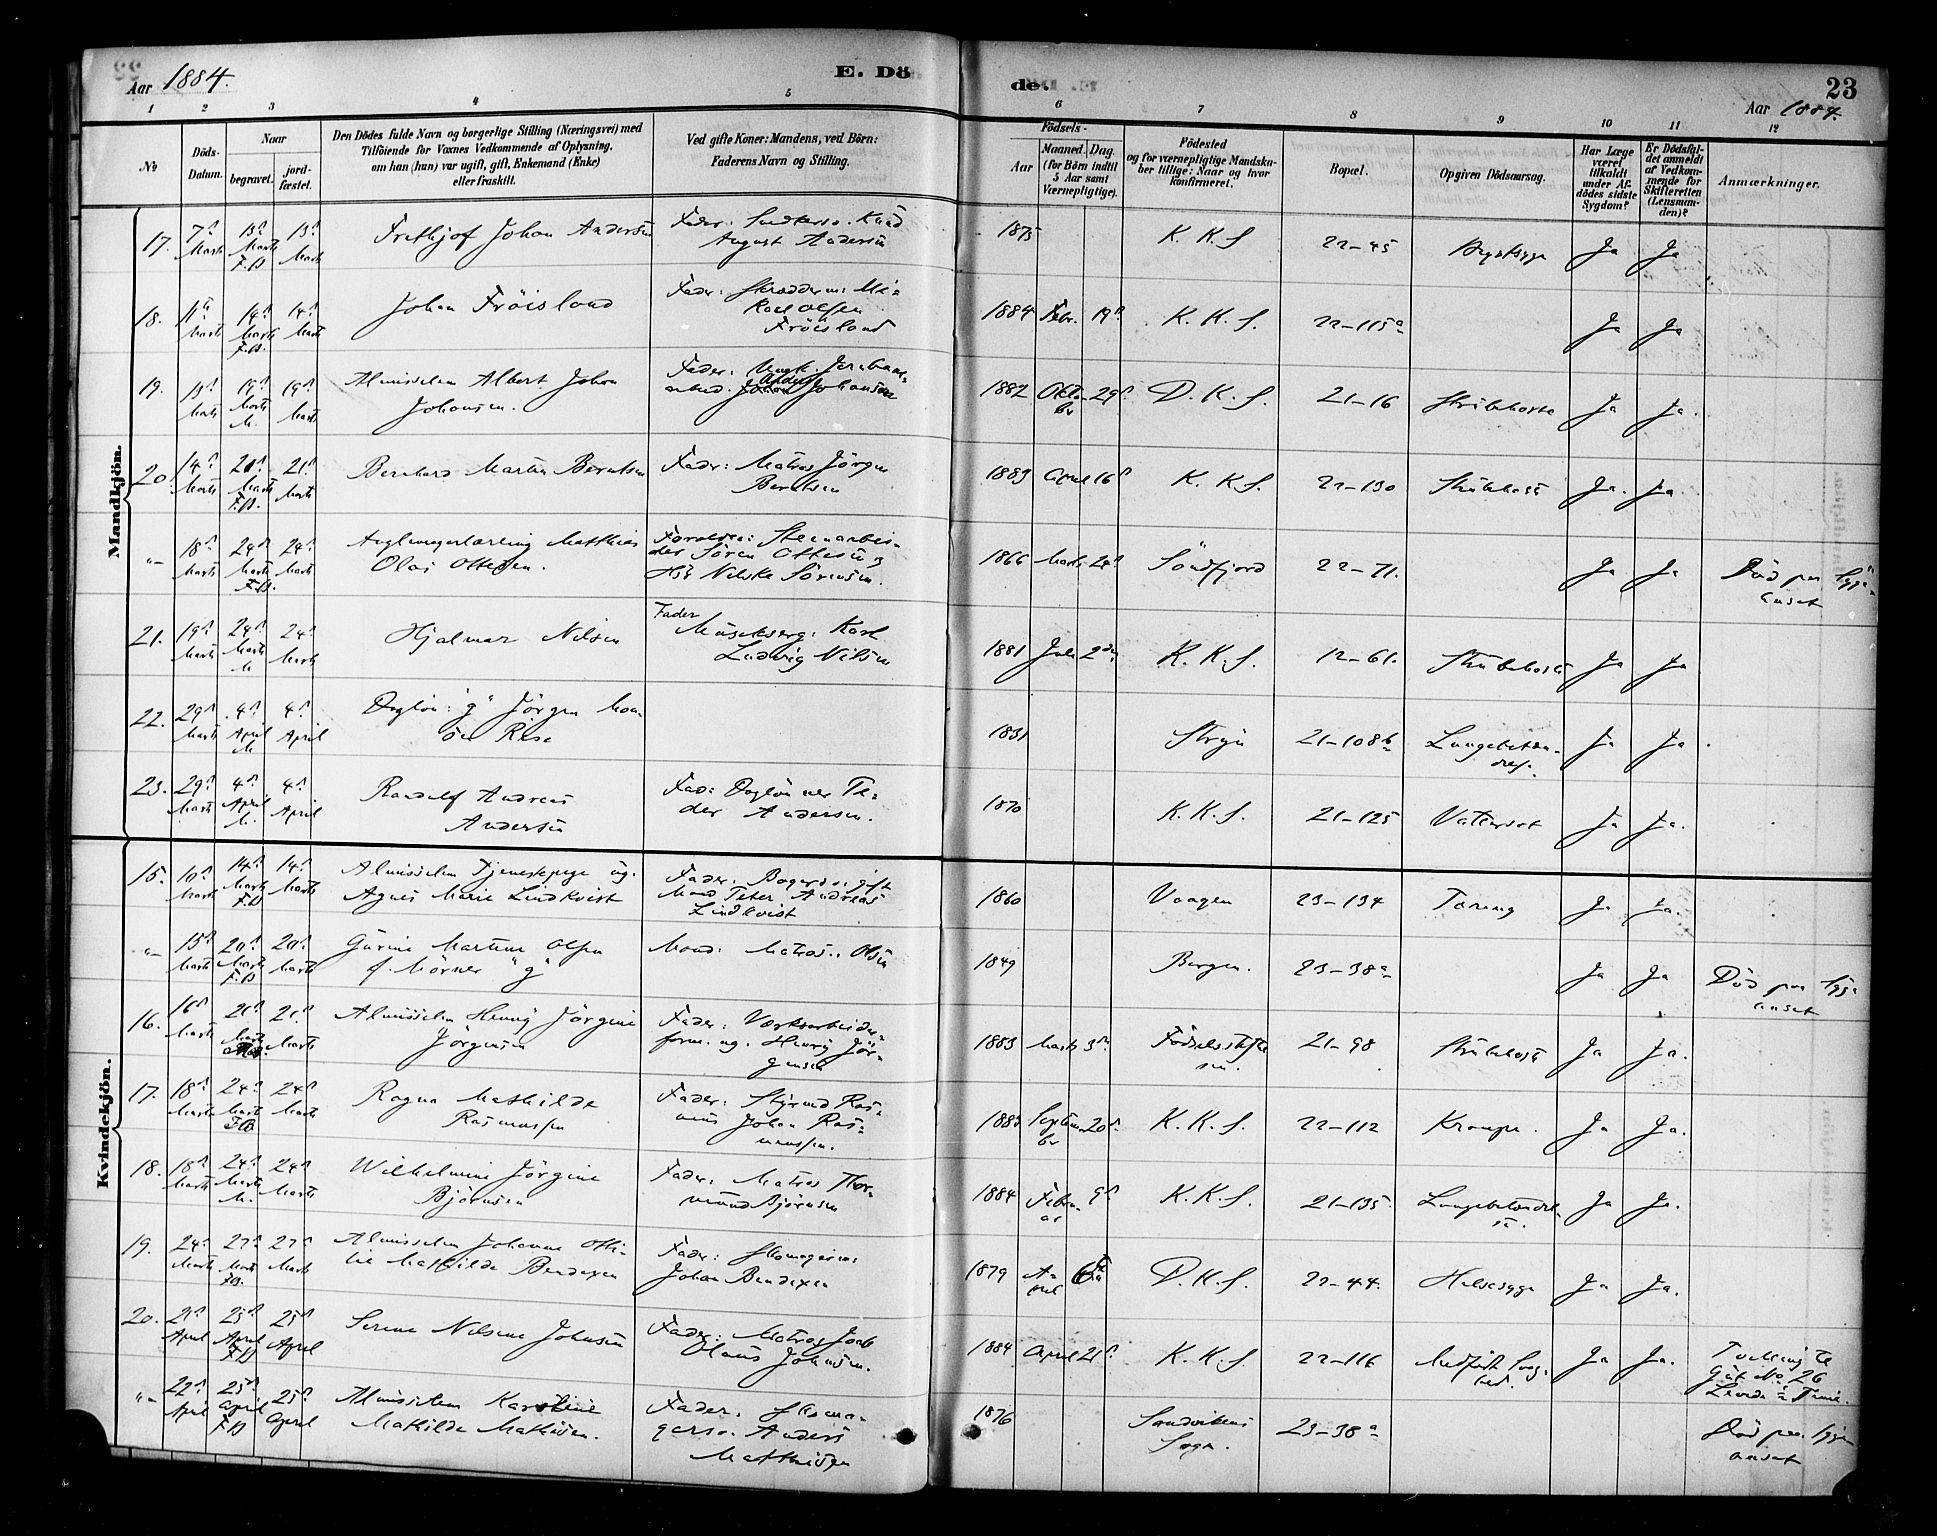 Aar 1884.
E. Dö
de.
23
Aar 1884.
1 2 3 4 5 6 7 8 9 10 11 12
No
Döds-Datum.
Naar
begravet.
jord-fæstet.
Den Dödes fulde Navn og borgerlige Stilling (Næringsvei) med
Tilföiende for Voxnes Vedkommende af Oplysning,
om han (hun) var ugift, gift, Enkemand (Enke)
eller fraskilt.
Ved gifte Koner: Mandens, ved Börn:
Faderens Navn og Stilling.
Födsels-
Aar
Maaned. Dag.
(for Börn indtil
5 Aar samt
Værnepligtige).
Födested
og for værnepligtige Mandska-
ber tillige: Naar og hvor
konfirmeret.
Bopæl.
Opgiven Dödsaarsag.
Har Læge
været
tilkaldt
under Af-
dödes sidste
Sygdom?
Er Dödsfal-
det anmeldt
af Vedkom-
mende for
Skifteretten
(Lensman-
den)?
Anmærkninger.
Mandkjön.
17. 7 Marts 13 Marts F.B. 13 Marts Frethjof Johan Andersen Fader: Knud August Andersen 1875 K. K. S 22-45 Brystsyge Ja Ja
18. 11 Marts 14 Marts F.B. 14 Marts Johan Fröisland Fader: Skræðderm: Mi-kael Olsen Fröisland 1884 Febr. 19 K. K. S. 22-115a Ja Ja
19. 13 Marts 19 Marts M. 19 Marts Almisselem Albert Johan Johansen. Fader: Anders Johansen 1882 Oktobr 29 D. K. S. 21-16 Strubehoste Ja Ja.
20. 14 Marts 21 Marts F.B. 21 Marts Bernhard Martin Berntsen Fader: Matros Jörgen Berntsen 1883 April 16 K. K. S. 22-130 Strubehoste Ja. Ja
"- 18 Marts 24 Marts F.B. 24 Marts Matthias Olai Ottesen. Forældre: Steenarbei-der Sören Ottesen og Nilska Sörensen. 1866 Marts 24 Söndfjord 22-71. Ja Ja Död paa Syge-anset
21. 19 Marts 24 Marts M 24 Marts Hjalmar Nilsen Fader Karl Ludvig Nilsen 1881 Juli 2den K. K. S. 12-61. Strubehoste Ja Ja
22. 29 Marts 4 April M 4 April Daglön: "g" Jörgen Rise 1831 Stryn 21-108b Lungebetæn-delse. Ja Ja.
23. 29 Marts 4 April M. 4 April Randolf Andreas Andersen Fad: Daglönner Pe-der Andersen. 1870 K. K. S. 21-125 Vattersot Ja Ja.
Kvindekjön.
15. 10 Marts 14 Marts F.B 14 Marts Almisselem Tjenestepige ug. Agnes Marie Lindkvist Fader: Peter Andreas Lindkvist 1860 Vaagen 23-134 Tæring Ja Ja.
"- 15 Marts 20 Marts F.B 20 Marts Gurine Martine Olsen f. Mörner "g" Mand: Matros.. Olsen 1849 Bergen. 23-38a Ja Ja Död paa Syge-anset
16. 16 Marts 21 Marts 21 Marts Almisselem Henny Jörgine Jörgensen Fader: Værksarbeider-form. ug. Henry Jör-gensen 1883 Marts 3 Födselsstiftel-sen. 21-98 Strubehoste Ja Ja.
17. 18 Marts 24 Marts F.B 24 Marts Ragna Mathilde Rasmussen Fader: Styrmd Ras-mus Johan Ras-mussen. 1883 Septembr 20 K. K. S. 22-112 Krampe. Ja Ja.
18. 18 Marts 24 Marts M. 24 Marts Wilhelmine Jörgine Björnsen Fader: Matros Thor-mund Björnsen 1884 Februar 9 K. K. S. 21-135. Lungebetændel-se. Ja Ja.
19. 24 Marts 27 Marts F.B. 27 Marts Almisselem Johanne Otti-lie Mathilde Bendixen Fader: Skomagersv. Johan Bendixen 1879 April 6 D. K. S. 22-44. Halsesyge Ja Ja.
20. 21 April 25 April F.B 25 April Serine Nilsine Johnsen Fader: Matros Jacob Olaus Johnsen. 1884 April 21 K. K. S. 22-116 Medfödt Svag-hed. Ja Ja. Tvilling No 26 Levede 2 Time.
"- 22 April 25 April F.B 25 April Almisselem Karoline Mathilde Mathisen. Fader: Skoma-gersv. Anders Mathisen 1876 Sandvikens Sogn. 23-38a Död paa Syge-anset